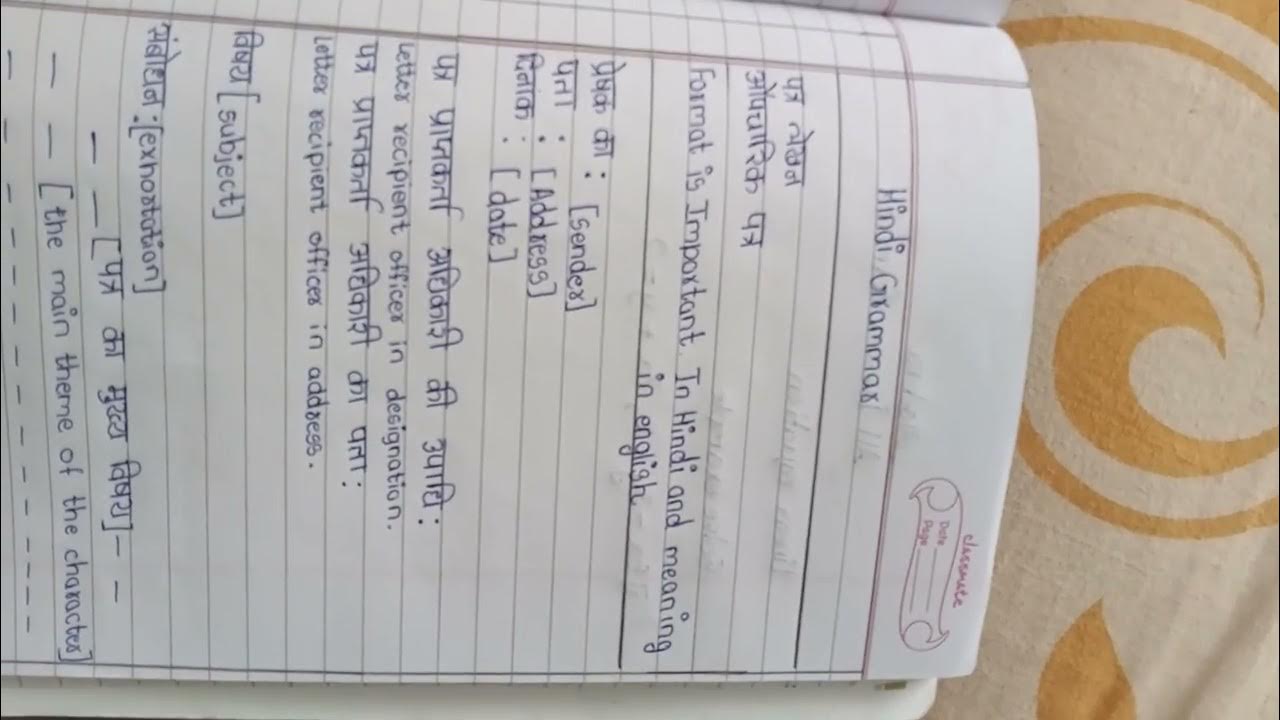 classmate
Date
Page
Hindi Grammar
पत्र लेखन
औपचारिक पत्र
Format is Important In Hindi and meaning
in english
प्रेषक का : [Sender]
पता : [Address]
दिनांक : [date]
पत्र प्राप्तकर्ता अधिकारी की उपाधि :
Letter recipient officer in designation.
पत्र प्राप्तकर्ता अधिकारी का पता :
Letter recipient officer in address.
विषय [subject]
संबोधन : [exhortation]
— — [पत्र का मुख्य विषय] – –
— — [the main theme of the character]
– – – – – – – – – – – – – –